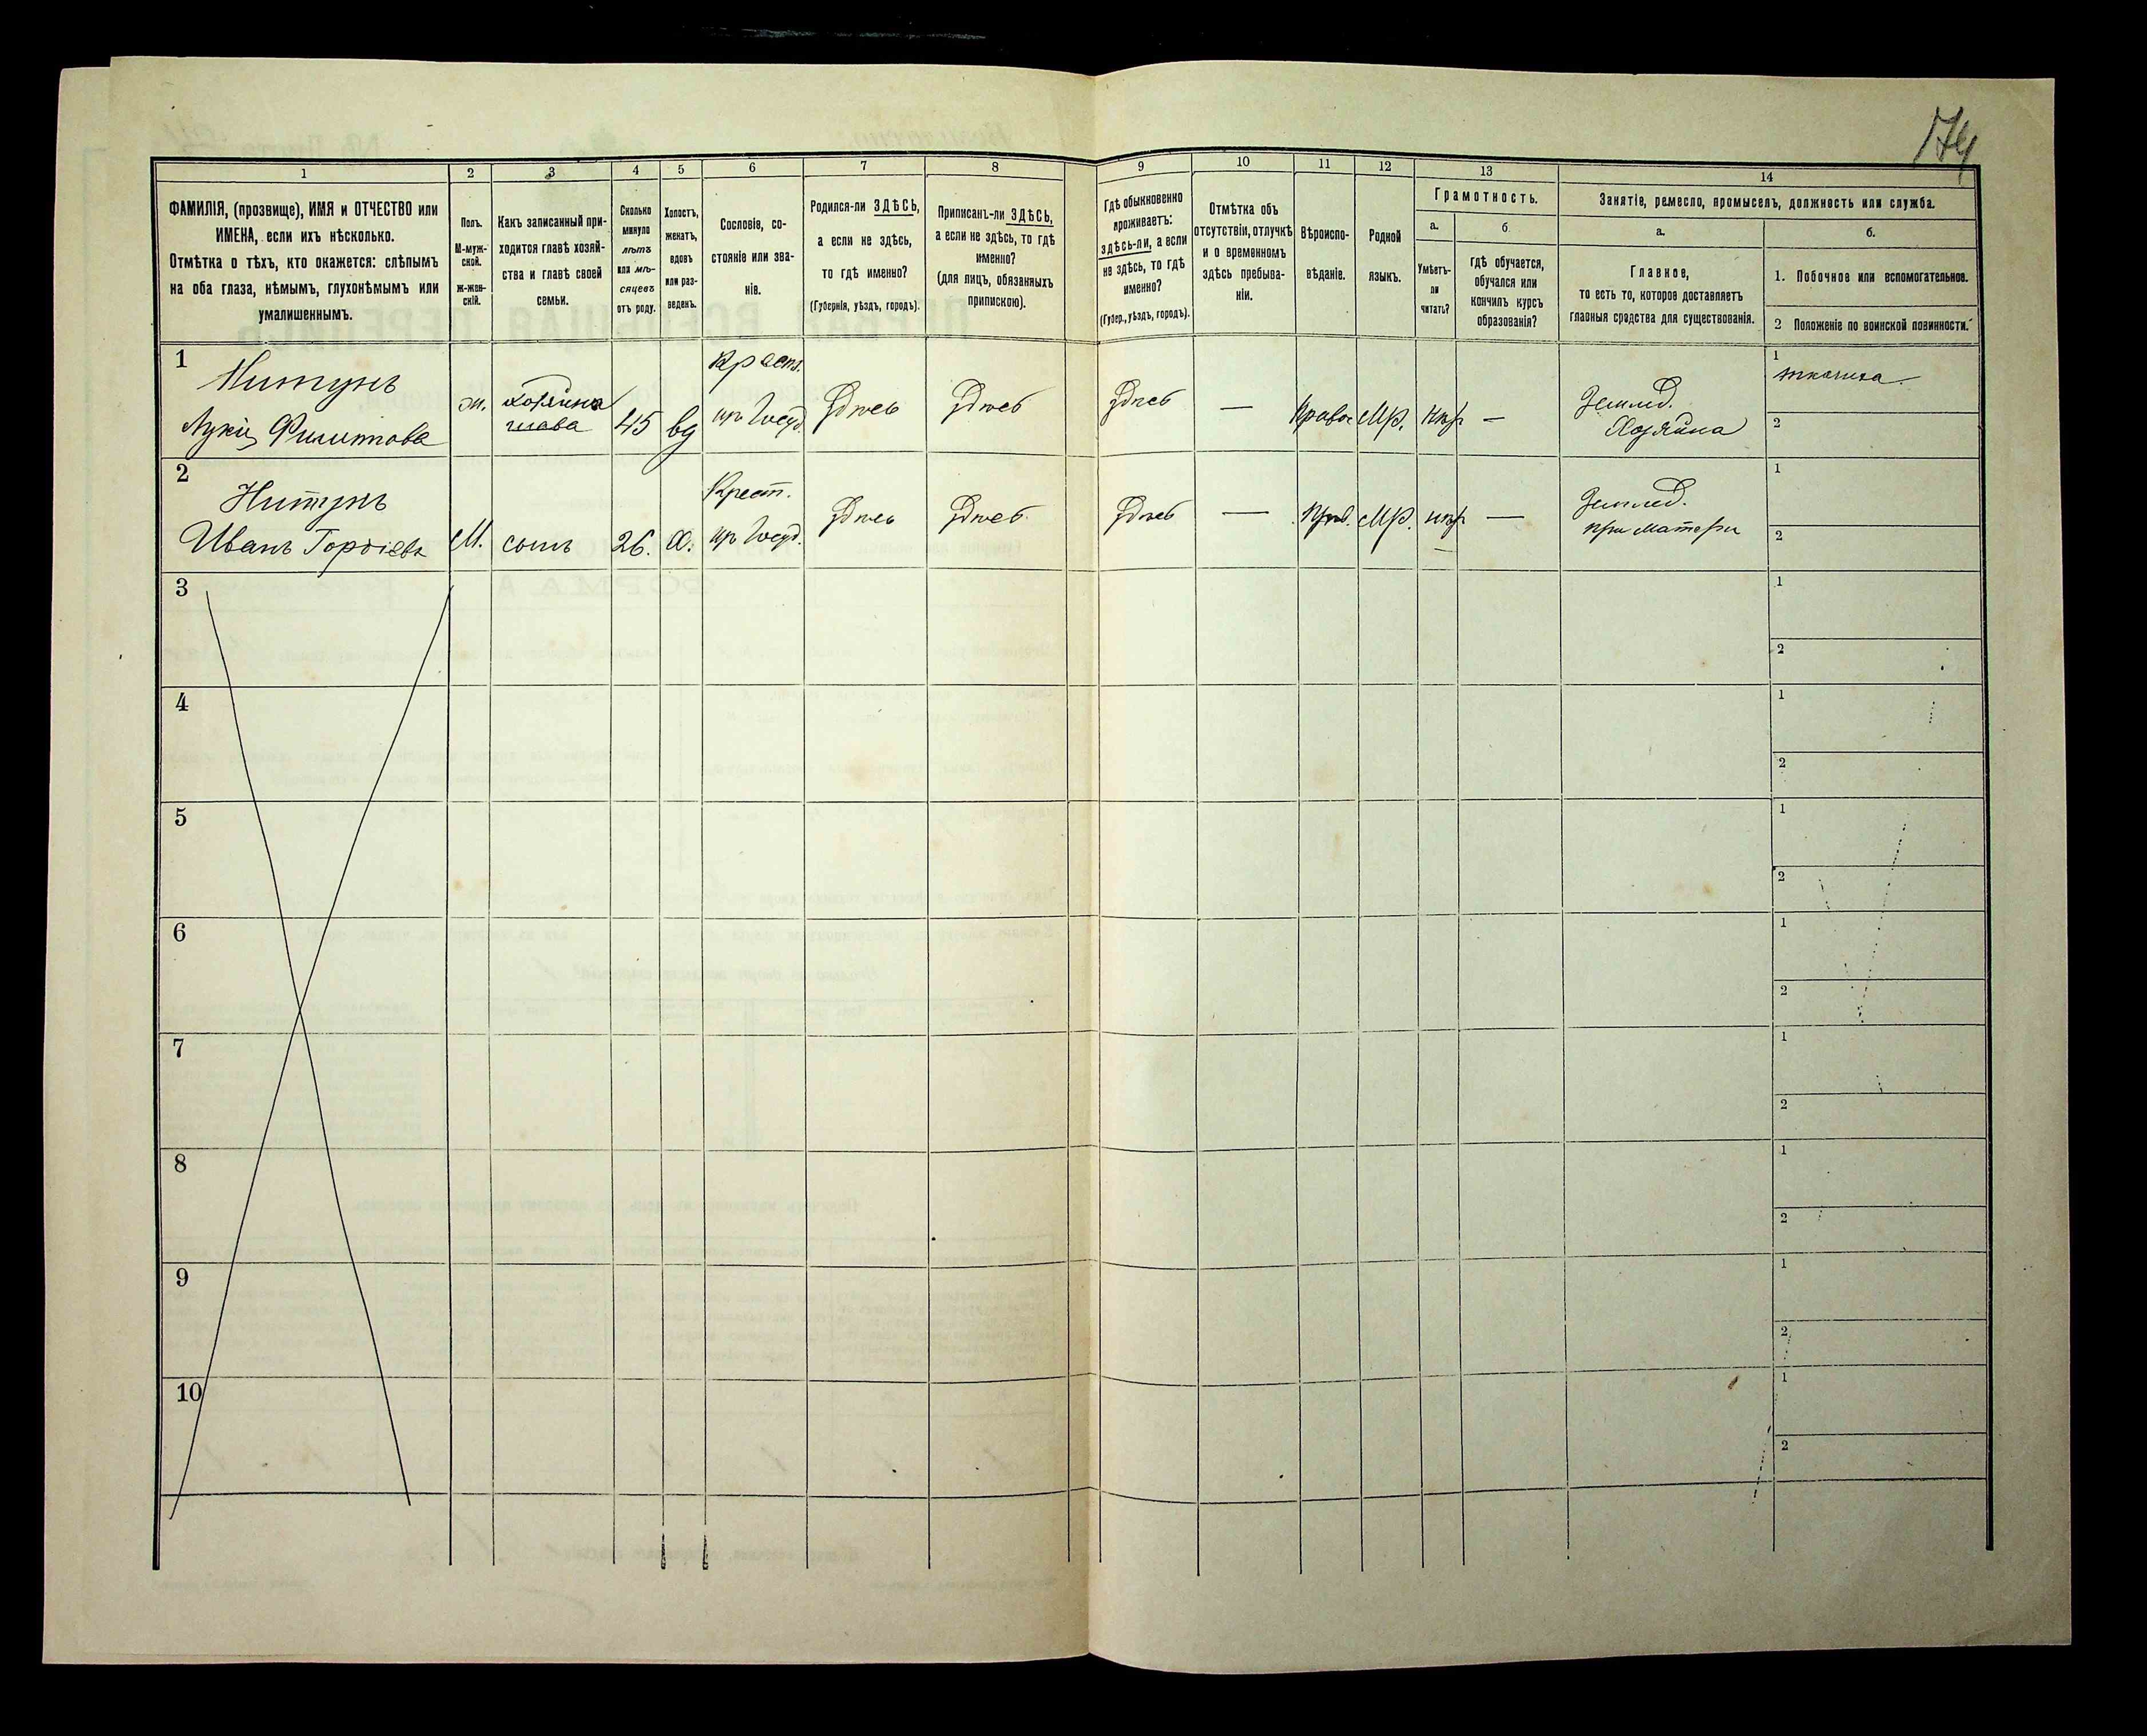 174
1
2
3
4
5
6
7
8
9
10
11
12
13
14
ФАМИЛІЯ, (прозвище), ИМЯ и ОТЧЕСТВО или
ИМЕНА, если ихъ нѣсколько.
Отмѣтка о тѣхъ, кто окажется: слѣпымъ
на оба глаза, нѣмымъ, глухонѣмымъ или
умалишеннымъ.
Полъ.
М-муж-
ской.
ж-жен-
скій.
Какъ записанный при-
ходится главѣ хозяй-
ства и главѣ своей
семьи.
Сколько
минуло
лѣтъ
или мѣ-
сяцевъ
отъ роду.
Холостъ,
женатъ,
вдовъ
или раз-
веденъ.
Сословіе, со-
стояніе или зва-
ніе.
Родился-ли ЗДѢСЬ,
а если не здѣсь,
то гдѣ именно?
(Губернія, уѣздъ, городъ).
Приписанъ-ли ЗДѢСЬ,
а если не здѣсь, то гдѣ
именно?
(для лицъ, обязанныхъ
припискою).
Гдѣ обыкновенно
проживаетъ:
здѣсь-ли, а если
не здѣсь, то гдѣ
именно?
(Губер., уѣздъ, городъ).
Отмѣтка объ
отсутствіи, отлучкѣ
и о временномъ
здѣсь пребыва-
ніи.
Вѣроиспо-
вѣданіе.
Родной
языкъ.
Грамотность.
а.
Умѣетъ-
ли
читать?
б.
Гдѣ обучается,
обучался или
кончилъ курсъ
образованія?
Занятіе, ремесло, промыселъ, должность или служба.
а.
Главное,
то есть то, которое доставляетъ
главныя средства для существованія.
б.
1. Побочное или вспомогательное.
2 Положеніе по воинской повинности.
1
Нитунъ
ж.
Хозяйка
глава
45
вд
Крест.
Здесь
Здесь
Здесь
—
Правос
Мр.
—
Землед.
Хозяйка
1
ткачиха.
2
2
Нитунъ
Иванъ
М.
сынъ
26.
Х.
Крест.
Здесь
Здесь
Здесь
—
Прав.
Мр.
—
Землед.
при матери
1
2
3
1
2
4
1
2
5
1
2
6
1
2
7
1
2
8
1
2
9
1
2
10
1
2